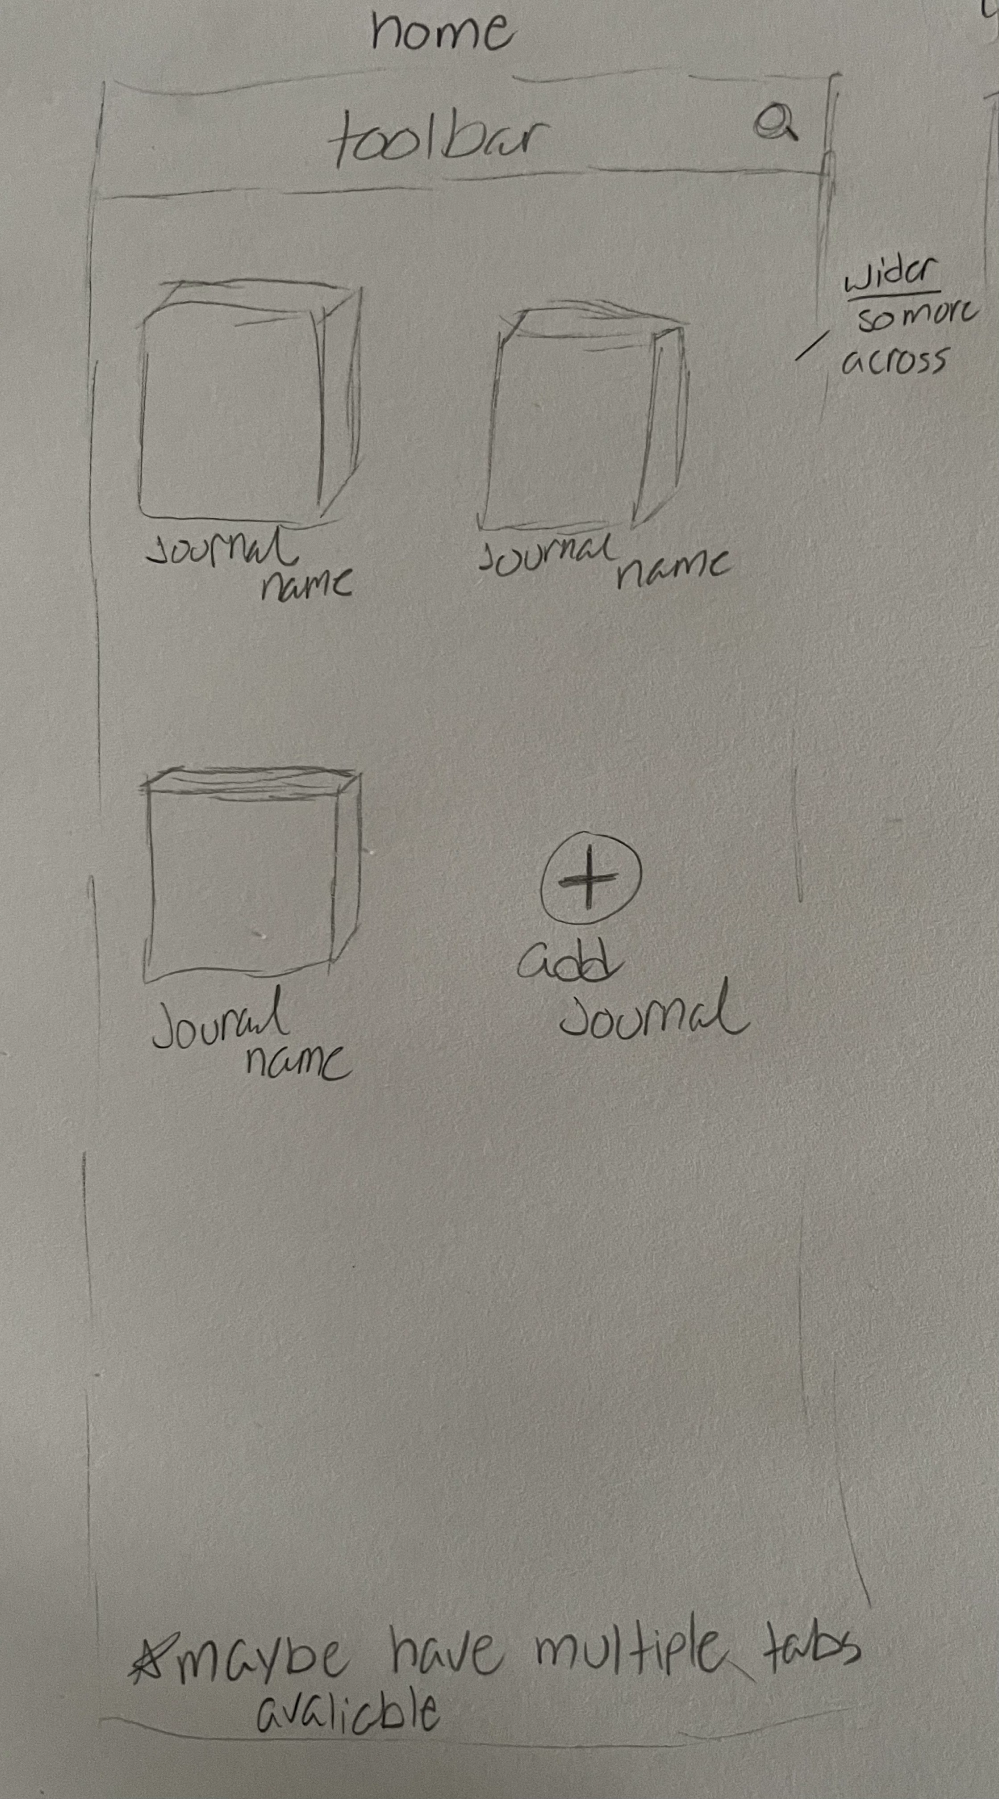 home
toolbar
wider
so more
across
Journal
name
Journal
name
Jounal
name
add
Journal
*maybe have multiple tabs
avalicble